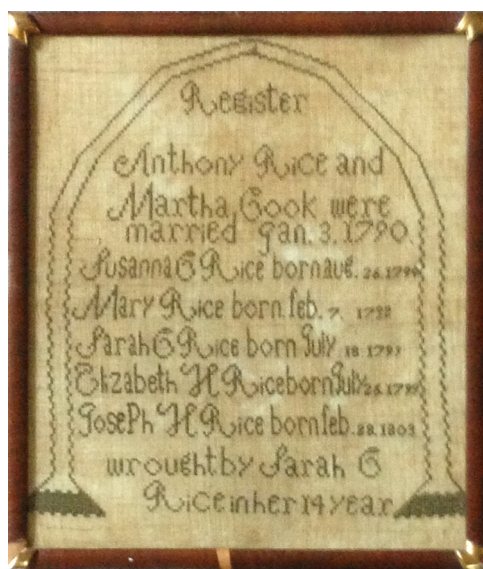 Register
Anthony Rice and
Martha Cook were
married Jan. 3. 1790.
Susanna C Rice born aug. 26.
Mary Rice born feb. 7.
Sarah C Rice born July 18
Elizabeth H Rice born July 26.
Joseph H Rice born feb. 28. 1803
wrought by Sarah C
Rice in her 14 year